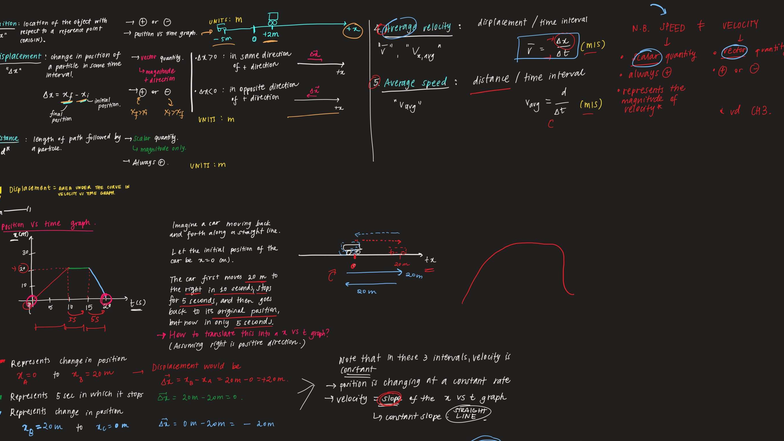 position": location of the object with
respect to a reference point
(ORIGIN).
→ ⊕ or ⊖
→ position vs time graph.
UNITS: m
-5m 0 +2m +x
displacement: change in position of
"Δx" a particle in some time
interval.
Δx = xf - xi
final position
initial position
→ vector quantity.
↳ magnitude
+ direction
→ ⊕ or ⊖
xf > xi xi > xf
• Δx>0 : in same direction
of + direction
Δx
+x
• Δx<0 : in opposite direction
of + direction
Δx
+x
UNITS: m
distance: length of path followed by
a particle.
→ scalar quantity
↳ magnitude only.
→ Always ⊕.
UNITS: m
Displacement = AREA UNDER THE CURVE IN
VELOCITY VS TIME GRAPH
4. Average velocity: displacement / time interval
"v̄", "Vx,avg"
v̄ = Δx / Δt (m/s)
5. Average speed: distance / time interval
"vavg"
vavg = d / Δt (m/s)
C
N.B. SPEED ≠ VELOCITY
• scalar quantity
• always ⊕
• represents the
magnitude of
velocity*
• vector quantity
• ⊕ or ⊖
CH3.
Position vs time graph.
x(m)
30
20
10
5 10 15 20 t(s)
5s 5s
Imagine a car moving back
and forth along a straight line.
Let the initial position of the
car be x=0 (m).
The car first moves 20 m to
the right in 10 seconds, stops
for 5 seconds, and then goes
back to its original position,
but now in only 5 seconds.
→ How to translate this into a x vs t graph?
(Assuming right is positive direction.)
0 20m +x
20m
20m
Represents change in position
xA=0 to xB=20m
→ Displacement would be
Δx = xB - xA = 20m - 0 = +20m.
Represents 5 sec in which it stops
Δx = 20m - 20m = 0.
Represents change in position
xB=20m to xC=0m
Δx = 0m - 20m = - 20m.
Note that in these 3 intervals, velocity is
constant
→ position is changing at a constant rate
→ velocity = slope of the x vs t graph
↳ constant slope (STRAIGHT
LINE)